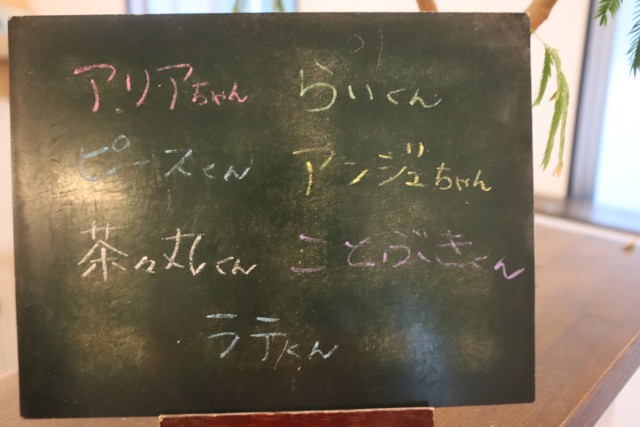 アリアちゃん らいくん
ピースくん アンジュちゃん
茶々丸くん ことぶきくん
ラテくん